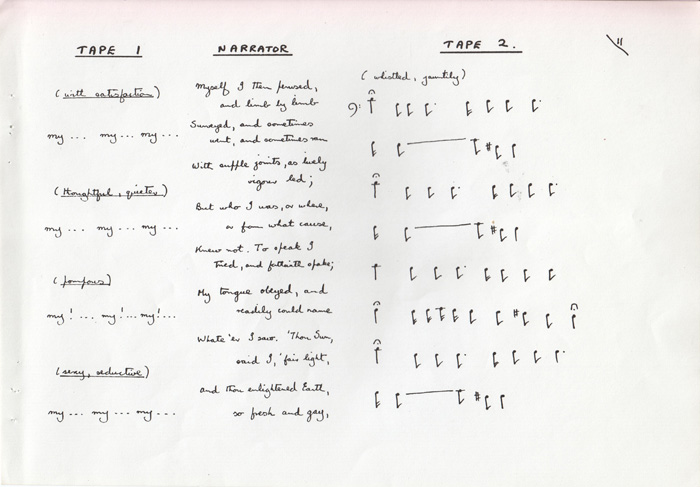 TAPE 1
NARRATOR
TAPE 2.
11
(with satisfaction)
my ... my ... my ...
(thoughtful, quieter)
my ... my ... my ...
(pompous)
my! ... my! ... my! ...
(sexy, seductive)
my ... my ... my ...
Myself I then perused,
and limb by limb
Surveyed, and sometimes
went, and sometimes ran
With supple joints, as lively
vigour led;
But who I was, or where,
or from what cause,
Knew not. To speak I
tried, and forthwith spake;
My tongue obeyed, and
readily could name
Whate'er I saw. 'Thou Sun,
said I, 'fair light,
and thou enlightened Earth,
so fresh and gay,
(whistled, jauntily)